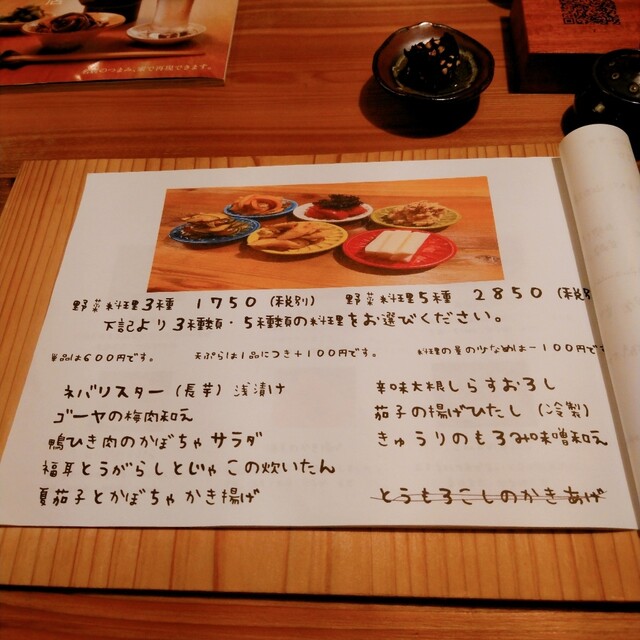 のつまみ、家で再現できます。
野菜料理3種 1750(税別) 野菜料理5種 2850(税別
下記より3種類・5種類の料理をお選びください。
単品は600円です。 天ぷらは1品につき+100円です。 料理の量の少なめは-100円です
ネバリスター(長芋)浅漬け
ゴーヤの梅肉和え
鴨ひき肉のかぼちゃサラダ
福耳とうがらしとじゃこの炊いたん
夏茄子とかぼちゃかき揚げ
辛味大根しらすおろし
茄子の揚げびたし(冷製)
きゅうりのもろみ味噌和え
とうもろこしのかきあげ